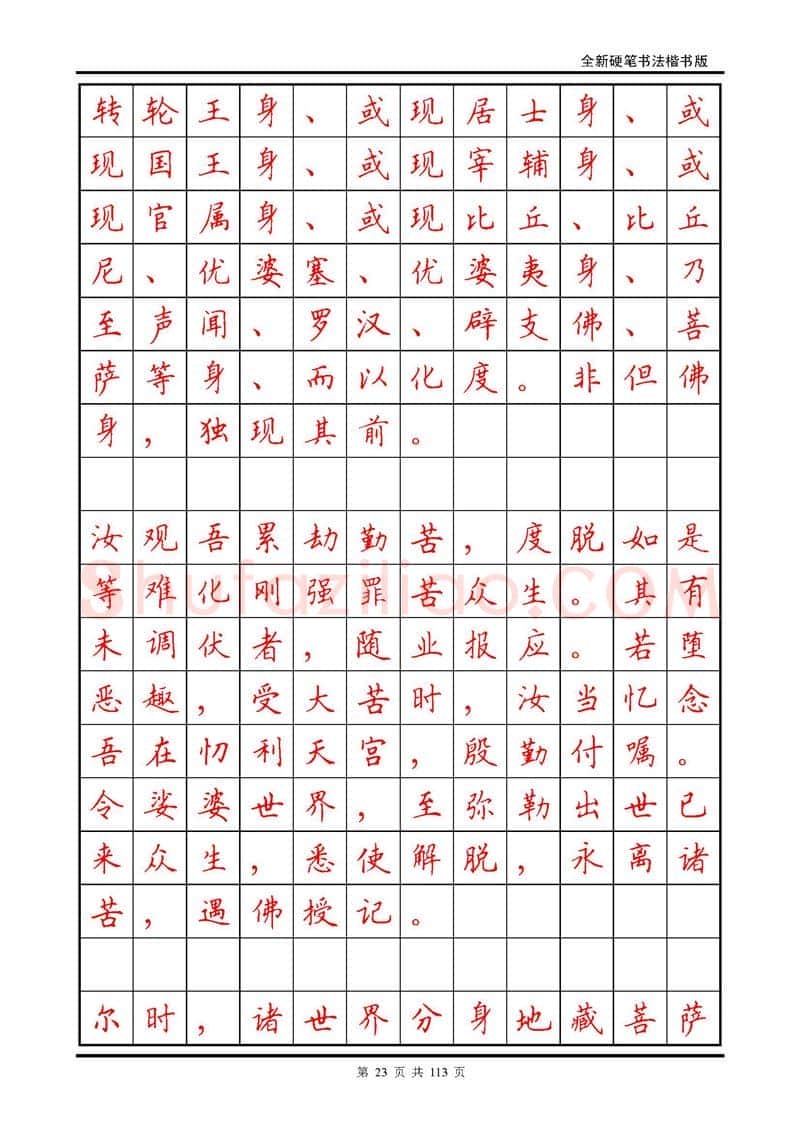 全新硬笔书法楷书版
转轮王身、或现居士身、或
现国王身、或现宰辅身、或
现官属身、或现比丘、比丘
尼、优婆塞、优婆夷身、乃
至声闻、罗汉、辟支佛、菩
萨等身、而以化度。非但佛
身，独现其前。
汝观吾累劫勤苦，度脱如是
等难化刚强罪苦众生。其有
shufaziliao.com
未调伏者，随业报应。若堕
恶趣，受大苦时，汝当忆念
吾在忉利天宫，殷勤付嘱。
令娑婆世界，至弥勒出世已
来众生，悉使解脱，永离诸
苦，遇佛授记。
尔时，诸世界分身地藏菩萨
第 23 页 共 113 页